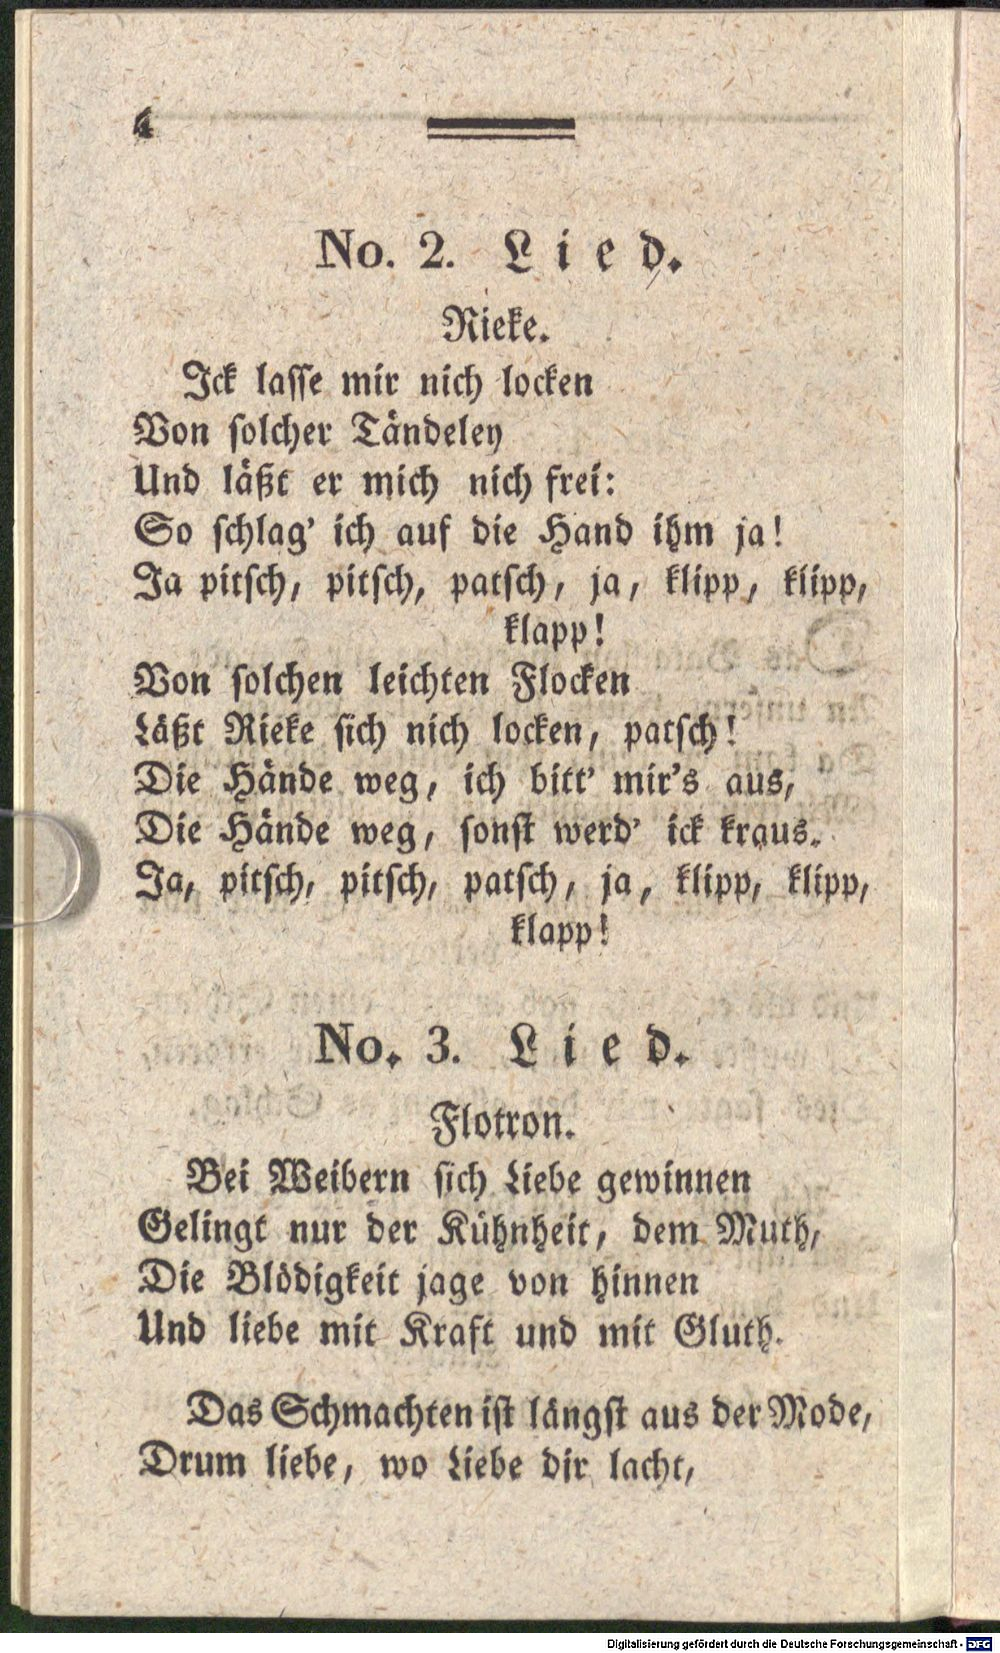 4
No. 2. Lied.
Rieke.
Ick lasse mir nich locken
Von solcher Tändeley
Und läßt er mich nich frei:
So schlag' ich auf die Hand ihm ja!
Ja pitsch, pitsch, patsch, ja, klipp, klipp,
klapp!
Von solchen leichten Flocken
Läßt Rieke sich nich locken, patsch!
Die Hände weg, ich bitt' mir's aus,
Die Hände weg, sonst werd' ick kraus.
Ja, pitsch, pitsch, patsch, ja, klipp, klipp,
klapp!
No. 3. Lied.
Flotron.
Bei Weibern sich Liebe gewinnen
Gelingt nur der Kühnheit, dem Muth,
Die Blödigkeit jage von hinnen
Und liebe mit Kraft und mit Gluth.
Das Schmachten ist längst aus der Mode,
Drum liebe, wo Liebe dir lacht,
Digitalisierung gefördert durch die Deutsche Forschungsgemeinschaft - DFG